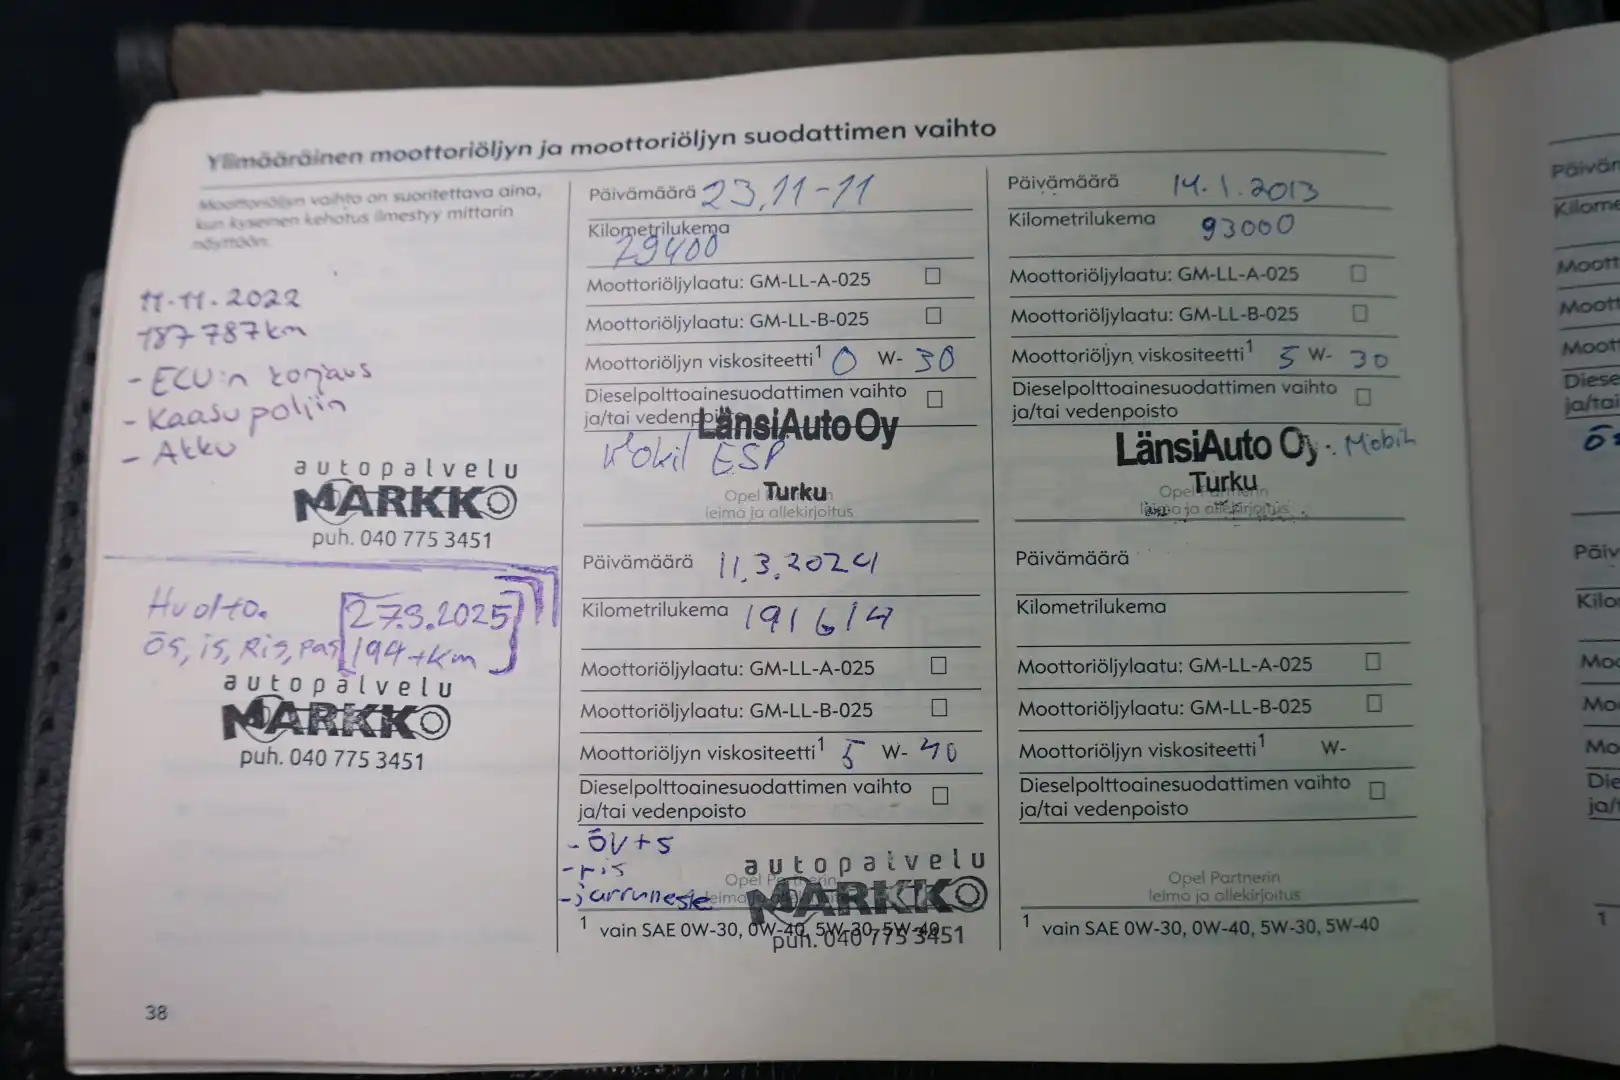 Ylimääräinen moottoriöljyn ja moottoriöljyn suodattimen vaihto
Moottoriöljyn vaihto on suoritettava aina,
kun kyseinen kehotus ilmestyy mittarin
näyttöön:
11.11.2022
187 787 km
- ECU:n korjaus
- Kaasu poljin
- Akku
autopalvelu
MARKKO
puh. 040 775 3451
Huolto. 27.9.2025
ÖS, is, Ris, Pas 194 tkm
autopalvelu
MARKKO
puh. 040 775 3451
Päivämäärä 23.11-11
Kilometrilukema
79400
Moottoriöljylaatu: GM-LL-A-025
Moottoriöljylaatu: GM-LL-B-025
Moottoriöljyn viskositeetti¹ 0 W- 30
Dieselpolttoainesuodattimen vaihto
ja/tai vedenpoisto
LänsiAuto Oy
ESP
Turku
Opel Partnerin
leima ja allekirjoitus
Päivämäärä 11.3.2024
Kilometrilukema 191614
Moottoriöljylaatu: GM-LL-A-025
Moottoriöljylaatu: GM-LL-B-025
Moottoriöljyn viskositeetti¹ 5 W- 40
Dieselpolttoainesuodattimen vaihto
ja/tai vedenpoisto
- ÖV+S
- ris
- jarruneste
autopalvelu
Opel Partnerin
MARKKO
puh. 040 775 3451
¹ vain SAE 0W-30, 0W-40, 5W-30, 5W-40
Päivämäärä 14.1.2013
Kilometrilukema 93000
Moottoriöljylaatu: GM-LL-A-025
Moottoriöljylaatu: GM-LL-B-025
Moottoriöljyn viskositeetti¹ 5 W- 30
Dieselpolttoainesuodattimen vaihto
ja/tai vedenpoisto
LänsiAuto Oy
Turku
Opel Partnerin
leima ja allekirjoitus
Päivämäärä
Kilometrilukema
Moottoriöljylaatu: GM-LL-A-025
Moottoriöljylaatu: GM-LL-B-025
Moottoriöljyn viskositeetti¹ W-
Dieselpolttoainesuodattimen vaihto
ja/tai vedenpoisto
Opel Partnerin
leima ja allekirjoitus
¹ vain SAE 0W-30, 0W-40, 5W-30, 5W-40
38